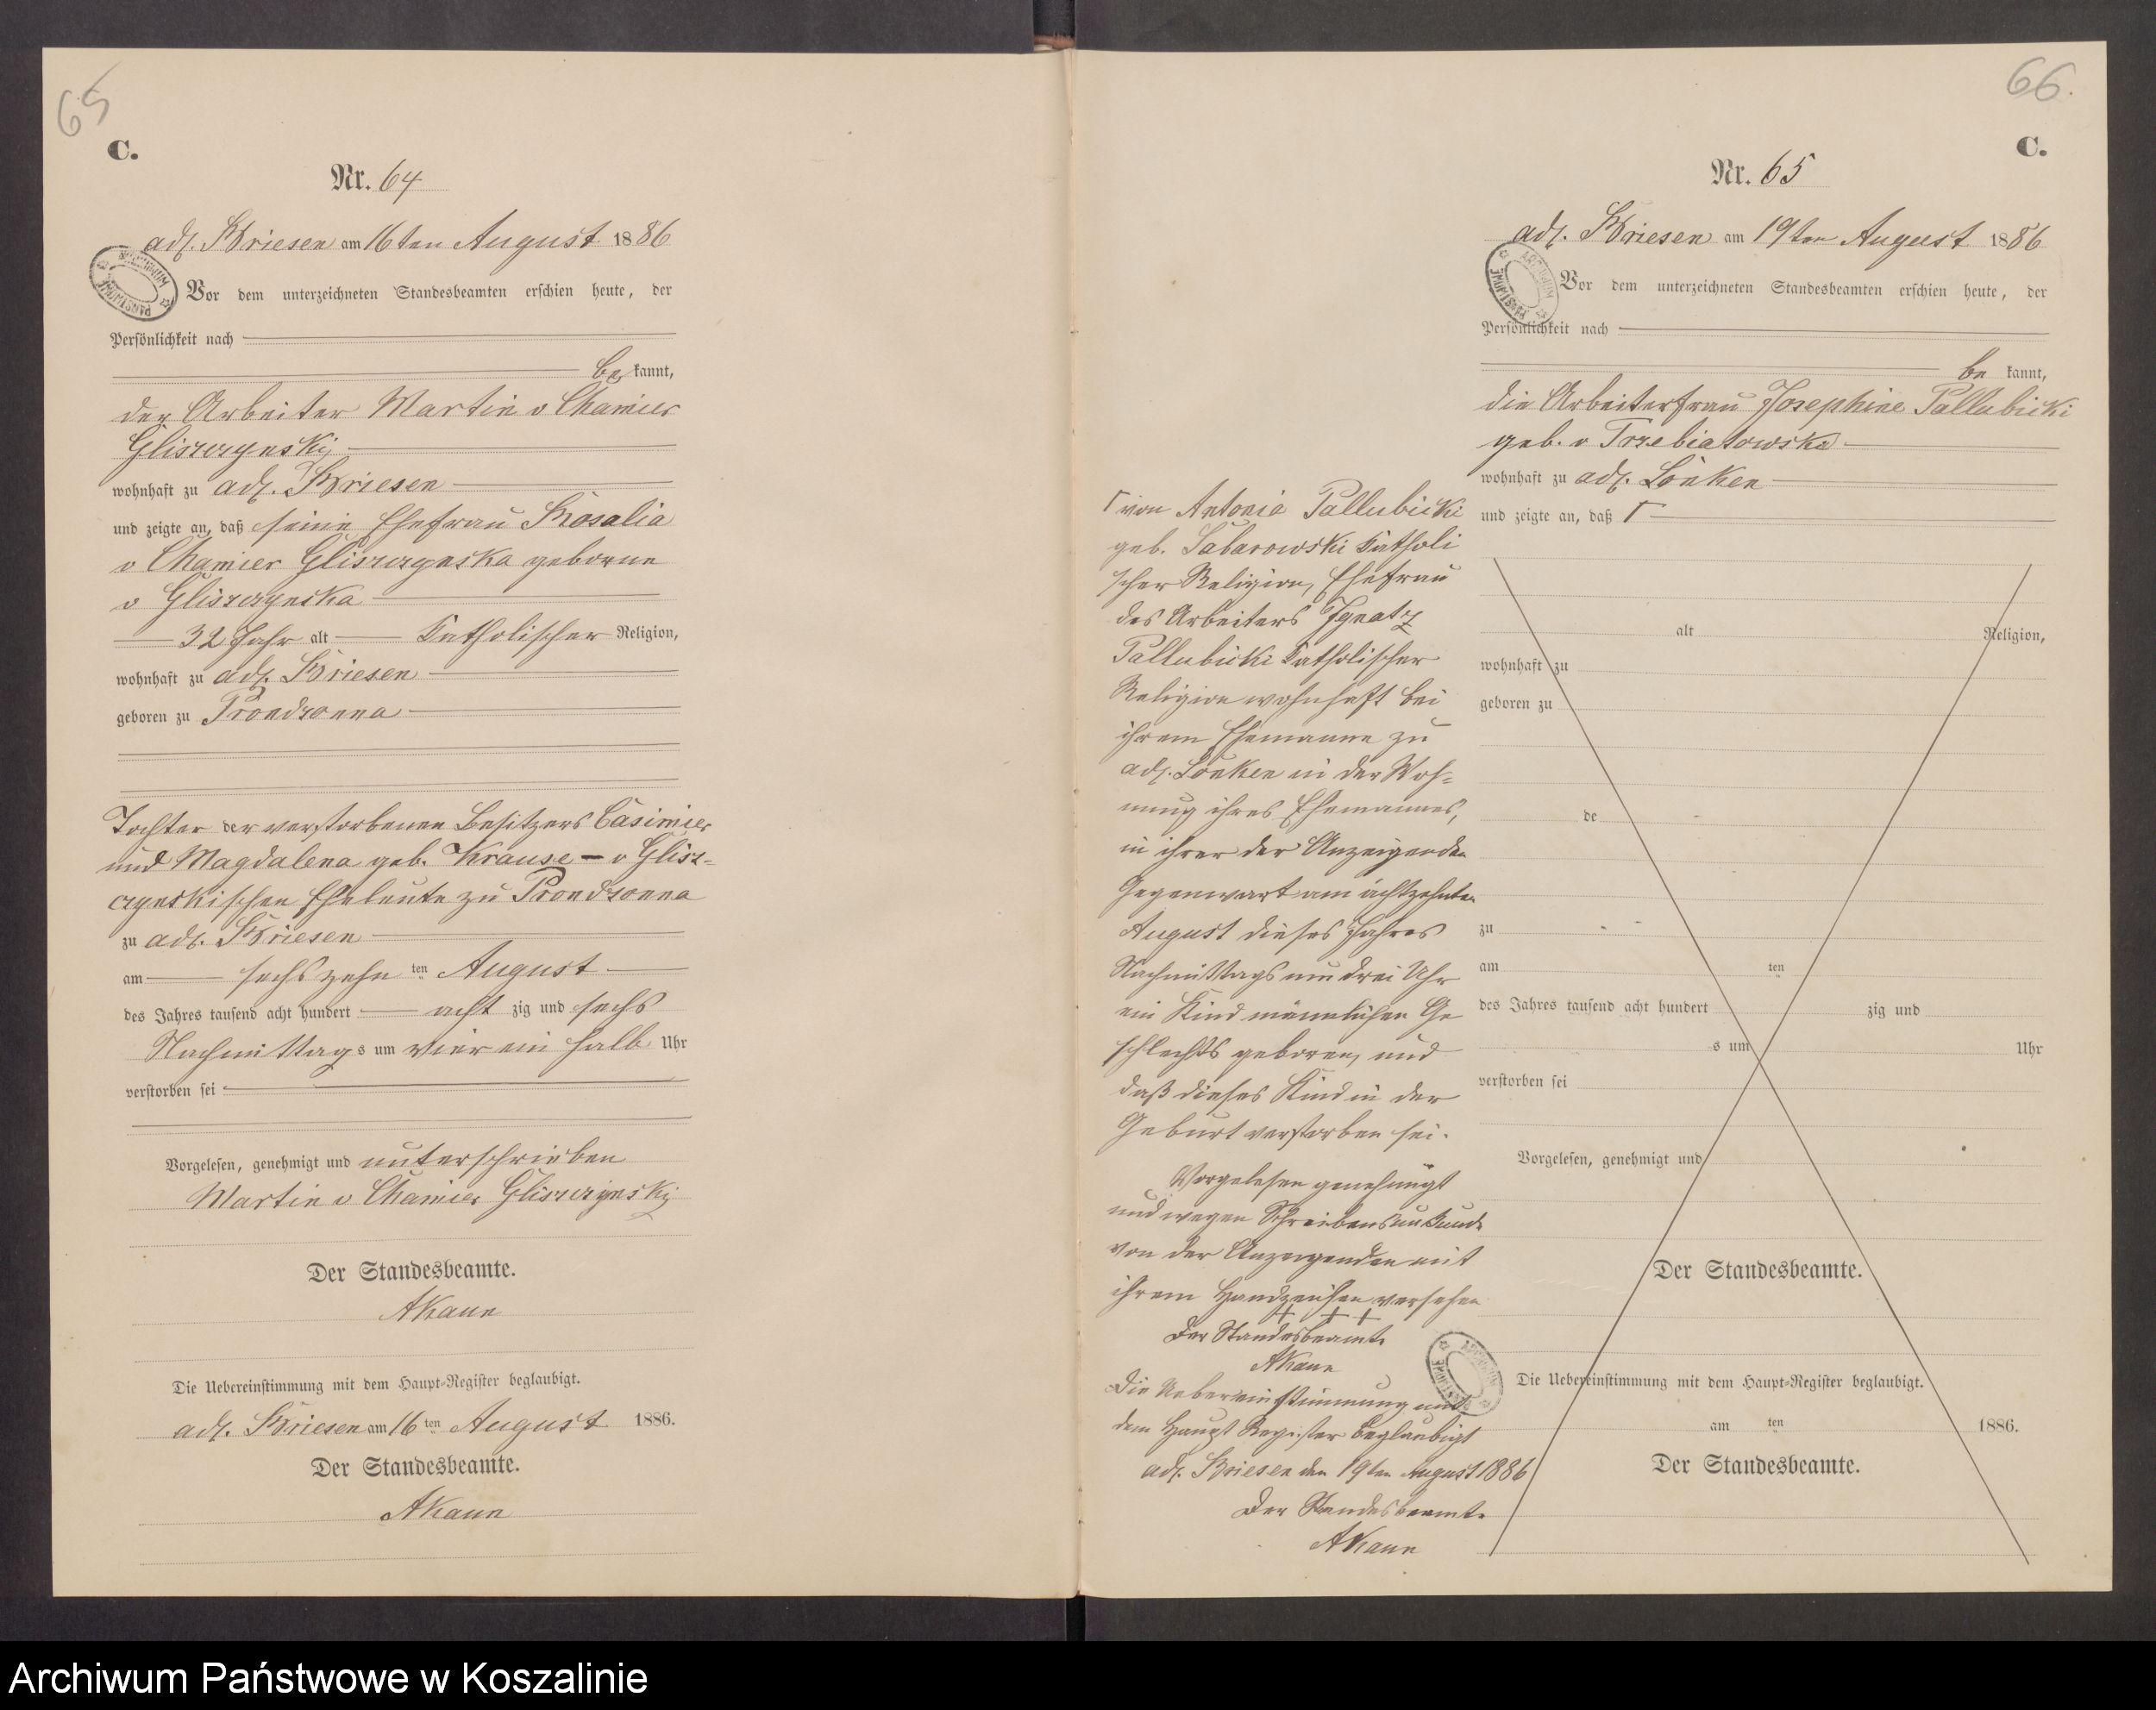 65
C.
Nr. 64
adl. Briesen am 16ten August 1886
Vor dem unterzeichneten Standesbeamten erschien heute, der
Persönlichkeit nach
bekannt,
der Arbeiter Martin v Chamier
Gliszczynski
wohnhaft zu adl. Briesen
und zeigte an, daß seine Ehefrau Rosalia
v Chamier Gliszczynska geborne
v Gliszczynska
32 Jahr alt Katholischer Religion,
wohnhaft zu adl. Briesen
geboren zu Prondzonna
Tochter der verstorbenen Besitzers Casimier
und Magdalena geb. Krause - v Glisz-
czynskischen Eheleute zu Prondzonna
zu adl. Briesen
am sechszehn ten August
des Jahres tausend acht hundert acht zig und sechs
Nachmittags um vier ein halb Uhr
verstorben sei
Vorgelesen, genehmigt und unterschrieben
Martin v Chamier Gliszczynski
Der Standesbeamte.
AKaun
Die Uebereinstimmung mit dem Haupt-Register beglaubigt.
adl. Briesen am 16ten August 1886.
Der Standesbeamte.
AKaun
66.
C.
Nr. 65
adl. Briesen am 19ten August 1886
Vor dem unterzeichneten Standesbeamten erschien heute, der
Persönlichkeit nach
be kannt,
die Arbeiterfrau Josephine Pallubicki
geb. v Trzebiatowska
wohnhaft zu adl. Lonken
und zeigte an, daß Γ
alt Religion,
wohnhaft zu
geboren zu
de
zu
am ten
des Jahres tausend acht hundert zig und
s um Uhr
verstorben sei
Vorgelesen, genehmigt und
Der Standesbeamte.
Die Uebereinstimmung mit dem Haupt-Register beglaubigt.
am ten 1886.
Der Standesbeamte.
Γ von Antonia Pallubicki
geb. Katholi
scher Religion, Ehefrau
des Arbeiters Ignatz
Pallubicki Katholischer
Religion wohnhaft bei
ihrem Ehemanne zu
adl. Lonken in der Woh-
nung ihres Ehemannes,
in ihrer der Anzeigenden
Gegenwart am achtzehnten
August dieses Jahres
Nachmittags um drei Uhr
ein Kind männlichen Ge
schlechts geboren, und
daß dieses Kind in der
Geburt verstorben sei.
Vorgelesen genehmigt
und wegen Schreibensunkunde
von der Anzeigenden mit
ihrem Handzeichen versehen
+ + +
Der Standesbeamte
AKaun
Die Uebereinstimmung mit
dem Haupt Register beglaubigt
adl. Briesen den 19ten August 1886
Der Standesbeamte
AKaun
Archiwum Państwowe w Koszalinie